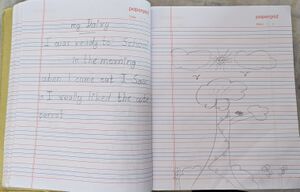 papergrid
my Dairy
I was ready to School
in the morning
when I came out I Saw
I really liked the cute
parrot
papergrid